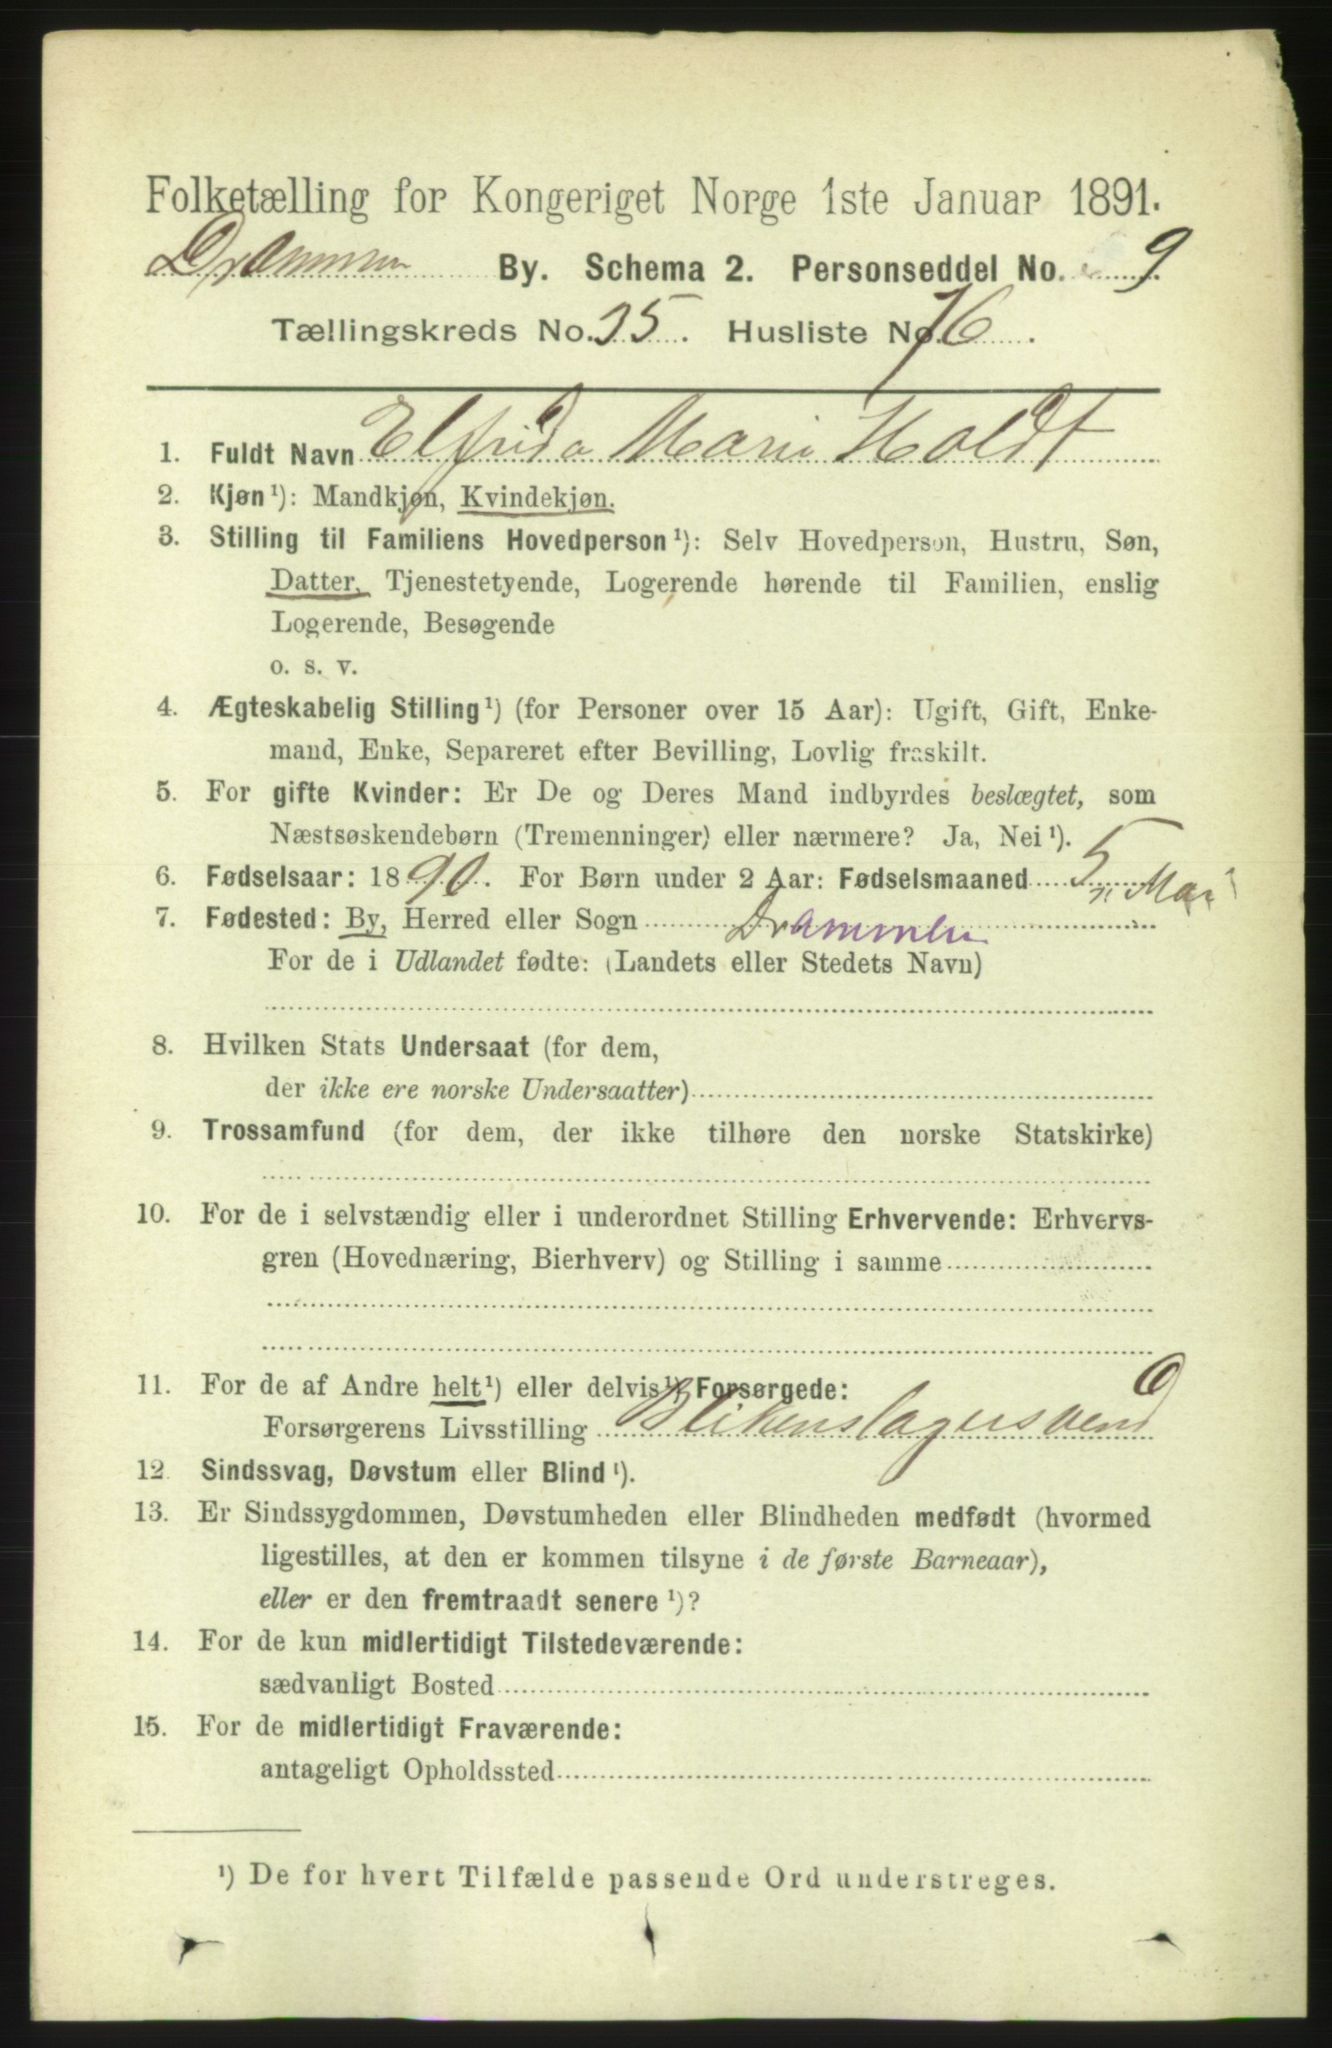 Folketælling for Kongeriget Norge 1ste Januar 1891.
Drammen By. Schema 2. Personseddel No. 9
Tællingskreds No. 35. Husliste No. 76.
1. Fuldt Navn Elfrida Marie Holdt
2. Kjøn¹): Mandkjøn, Kvindekjøn.
3. Stilling til Familiens Hovedperson¹): Selv Hovedperson, Hustru, Søn,
Datter, Tjenestetyende, Logerende hørende til Familien, enslig
Logerende, Besøgende
o. s. v.
4. Ægteskabelig Stilling¹) (for Personer over 15 Aar): Ugift, Gift, Enke-
mand, Enke, Separeret efter Bevilling, Lovlig fraskilt.
5. For gifte Kvinder: Er De og Deres Mand indbyrdes beslægtet, som
Næstsøskendebørn (Tremenninger) eller nærmere? Ja, Nei¹).
6. Fødselsaar: 1890. For Børn under 2 Aar: Fødselsmaaned 5 Mai
7. Fødested: By, Herred eller Sogn Drammen
For de i Udlandet fødte: (Landets eller Stedets Navn)
8. Hvilken Stats Undersaat (for dem,
der ikke ere norske Undersaatter)
9. Trossamfund (for dem, der ikke tilhøre den norske Statskirke)
10. For de i selvstændig eller i underordnet Stilling Erhvervende: Erhvervs-
gren (Hovednæring, Bierhverv) og Stilling i samme
11. For de af Andre helt¹) eller delvis¹) Forsørgede:
Forsørgerens Livsstilling Blikenslagersvend
12. Sindssvag, Døvstum eller Blind¹).
13. Er Sindssygdommen, Døvstumheden eller Blindheden medfødt (hvormed
ligestilles, at den er kommen tilsyne i de første Barneaar),
eller er den fremtraadt senere¹)?
14. For de kun midlertidigt Tilstedeværende:
sædvanligt Bosted
15. For de midlertidigt Fraværende:
antageligt Opholdssted
¹) De for hvert Tilfælde passende Ord understreges.